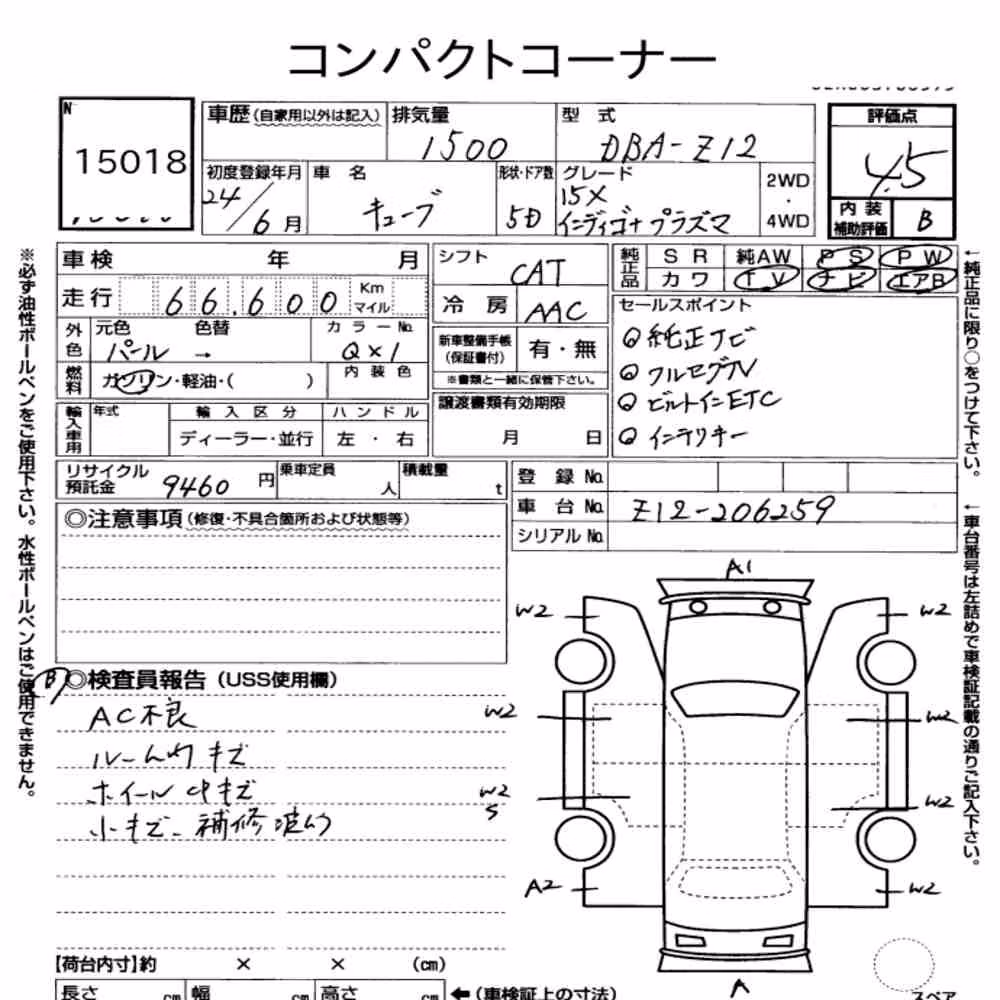 コンパクトコーナー
N
15018
車歴(自家用以外は記入) 排気量 型式 評価点
1500 DBA-Z12 4.5
初度登録年月 車名 形状・ドア数 グレード 2WD・4WD
24/6月 キューブ 5D 15X
インディゴ+プラズマ
内装補助評価 B
車検 年 月 シフト CAT
純正品 SR 純AW PS PW
カワ TV ナビ エアB
走行 66,600 Km マイル 冷房 AAC
セールスポイント
外色 元色 色替 カラーNo.
パール → QX1
新車整備手帳(保証書付) 有・無
※書類と一緒に保管下さい。
純正ナビ
フルセグTV
ビルトインETC
インテリキー
燃料 ガソリン・軽油・( ) 内装色
譲渡書類有効期限
月 日
輸入車用 年式 輸入区分 ハンドル
ディーラー・並行 左・右
リサイクル預託金 9460円 乗車定員 人 積載量 t
登録No.
車台No. Z12-206259
シリアルNo.
◎注意事項(修復・不具合箇所および状態等)
A1
W2 W2
B
◎検査員報告(USS使用欄)
AC不良
W2 W2
ルーム内キズ
ホイール中キズ
W2 W2
S
小キズ、補修波幻
A2 W2
【荷台内寸】約 × × (cm)
A
長さ cm 幅 cm 高さ cm ←(車検証上の寸法)
スペア
※必ず油性ボールペンをご使用下さい。水性ボールペンはご使用できません。
←純正品に限り○をつけて下さい。
←車台番号は左詰めで車検証記載の通りご記入下さい。